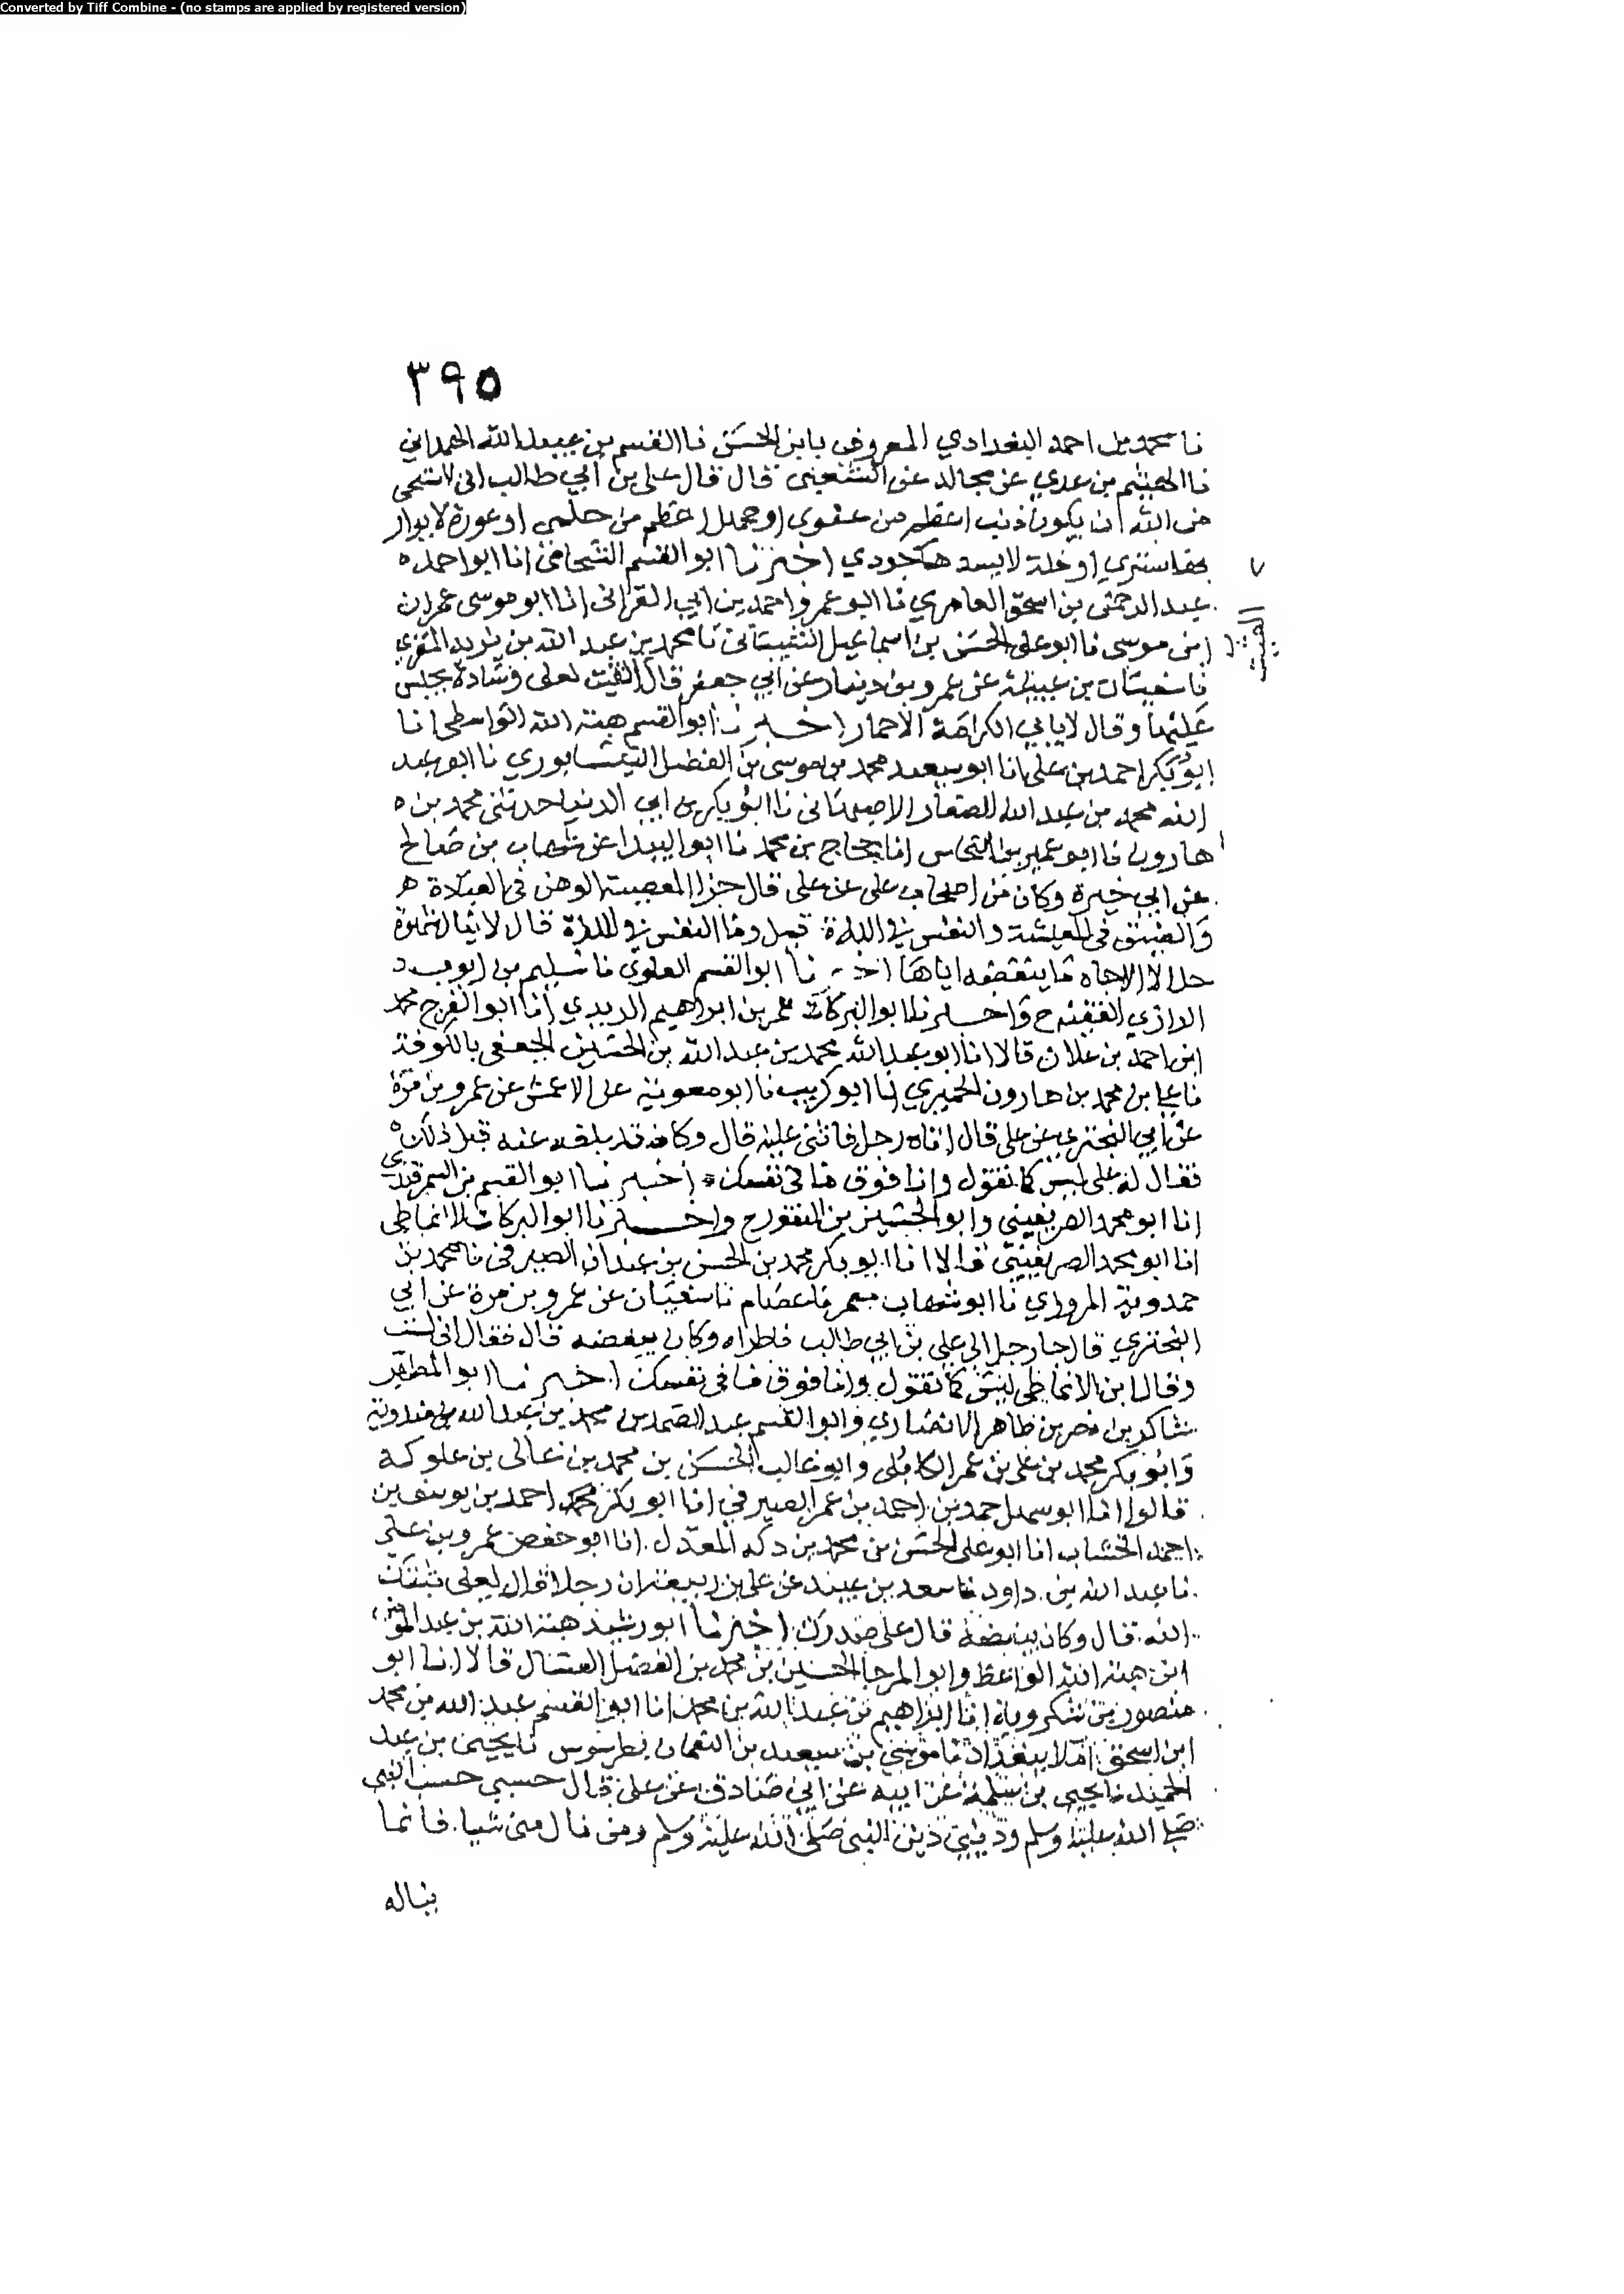 Converted by Tiff Combine - (no stamps are applied by registered version)
٣٩٥
نا محمد بن احمد البغدادي المعروف بابن الحسن نا القسم بن عبيد الله الهمداني
نا الهيثم بن عدي عن مجالد عن الشعبي قال قال علي بن أبي طالب اني لاستحي
من الله ان يكون ذنب اعظم من عفوى او جهل اعظم من حلمى او عورة لا يوار
بها سترى او خلة لا يسدها جودي اخبرنا ابو القسم الشحامي انا ابو احمد ه
عبد الرحمن بن اسحق العامري نا ابو عمرو احمد بن ابي القراتى انا ابو موسى عمران
ابن موسى نا ابو على الحسن بن اسماعيل نا محمد بن عبد الله بن يزيد المقري
نا سفيان بن عيينة عن عمرو بن دينار عن أبي جعفر قال القيت لعلى وسادة بجلس
عليها وقال لا يابي الكرامة الا حمار اخبرنا ابو القسم هبة الله الواسطى انا
ابو بكر احمد بن على انا ابو سعيد محمد بن موسى بن الفضل النيسابوري نا ابو عبد
الله محمد بن عبد الله الصفار الاصبهانى نا ابو بكر بن ابي الدنيا حدثنى محمد بن ه
هارون نا ابو عمير بن النحاس انا حجاج بن محمد نا ابو البيدا عن شهاب بن صالح
عن ابي خيرة وكان من اصحاب على عن على قال جزا المعصية الوهن في العبادة ه
والضيق في المعيشة والنقس في اللذة قيل وما النقس في اللذة قال لا ينال شهوة
حلالا الا جاه ما ينغصه اياها اخبرنا ابو القسم العلوى نا سليم بن ايوب
الرازي الفقيه ح واخبرنا ابو البركات عمر بن ابراهيم الزيدي أنا ابو الفرج محمد
ابن احمد بن علان قالا انا ابو عبد الله محمد بن عبد الله بن الحسين الجعفي بالكوفة
نا على بن محمد بن هارون الحميري نا ابو كريب نا ابو معوية عن الاعمش عن عمرو بن مرة
عن ابي البختري عن على قال اتاه رجل فاثنى عليه قال وكان قد بلغه عنه قبل ذلك ه
فقال له على ليس كما تقول وانا فوق ما في نفسك اخبرنا ابو القسم بن السمرقندي
انا ابو محمد الصريفيني وابو الحسين بن النقور ح واخبرنا ابو البركات الانماطي
انا ابو محمد الصريفيني قالا انا ابو بكر محمد بن الحسن بن عبدان الصيرفي نا محمد بن
حمدوية المروزي نا ابو شهاب معمر نا عصام نا سفيان عن عمرو بن مرة عن أبي
البختري قال جا رجل الى على بن ابي طالب فاطراه وكان يبغضه قال فقال اني لست
وقال ابن الانماطي ليس كما تقول وانا فوق ما في نفسك اخبرنا ابو المطهر
شاكر بن نصر بن طاهر الانصاري وابو القسم عبد الصمد بن محمد بن عبد الله بن مندوية
وابو بكر محمد بن على بن عمر الكابلى وابو غالب الحسن بن محمد بن عالى بن علوكة
قالوا انا ابو سهل حمد بن احمد بن عمر الصيرفي انا ابو بكر محمد احمد بن يوسف بن
احمد الخشاب انا ابو على الحسن بن محمد بن دكه المعدل انا ابو حفص عمرو بن على
نا عبد الله بن داود نا سعد بن عبيد عن على بن ربيعة ان رجلا قال لعلى ثبتك
الله قال وكان يبغضه قال على صدرك اخبرنا ابو رشيد هبة الله بن عبد
ابن هبة الله الواعظ وابو المرجا الحسين بن محمد بن الفضل العسال قالا انا ابو
منصور بن شكروية انا ابراهيم بن عبد الله بن محمد انا ابو القسم عبد الله بن محمد
ابن اسحق املا ببغداد نا موسى بن سعيد بن النعمان بطرسوس نا يحيى بن عبد
الحميد نا يحيى بن سلمة عن ابيه عن ابي صادق عن على قال حسبي حسب النبي
صلى الله عليه وسلم وديني دين النبي صلى الله عليه وسلم ومن نال مني شيا فانما
يناله